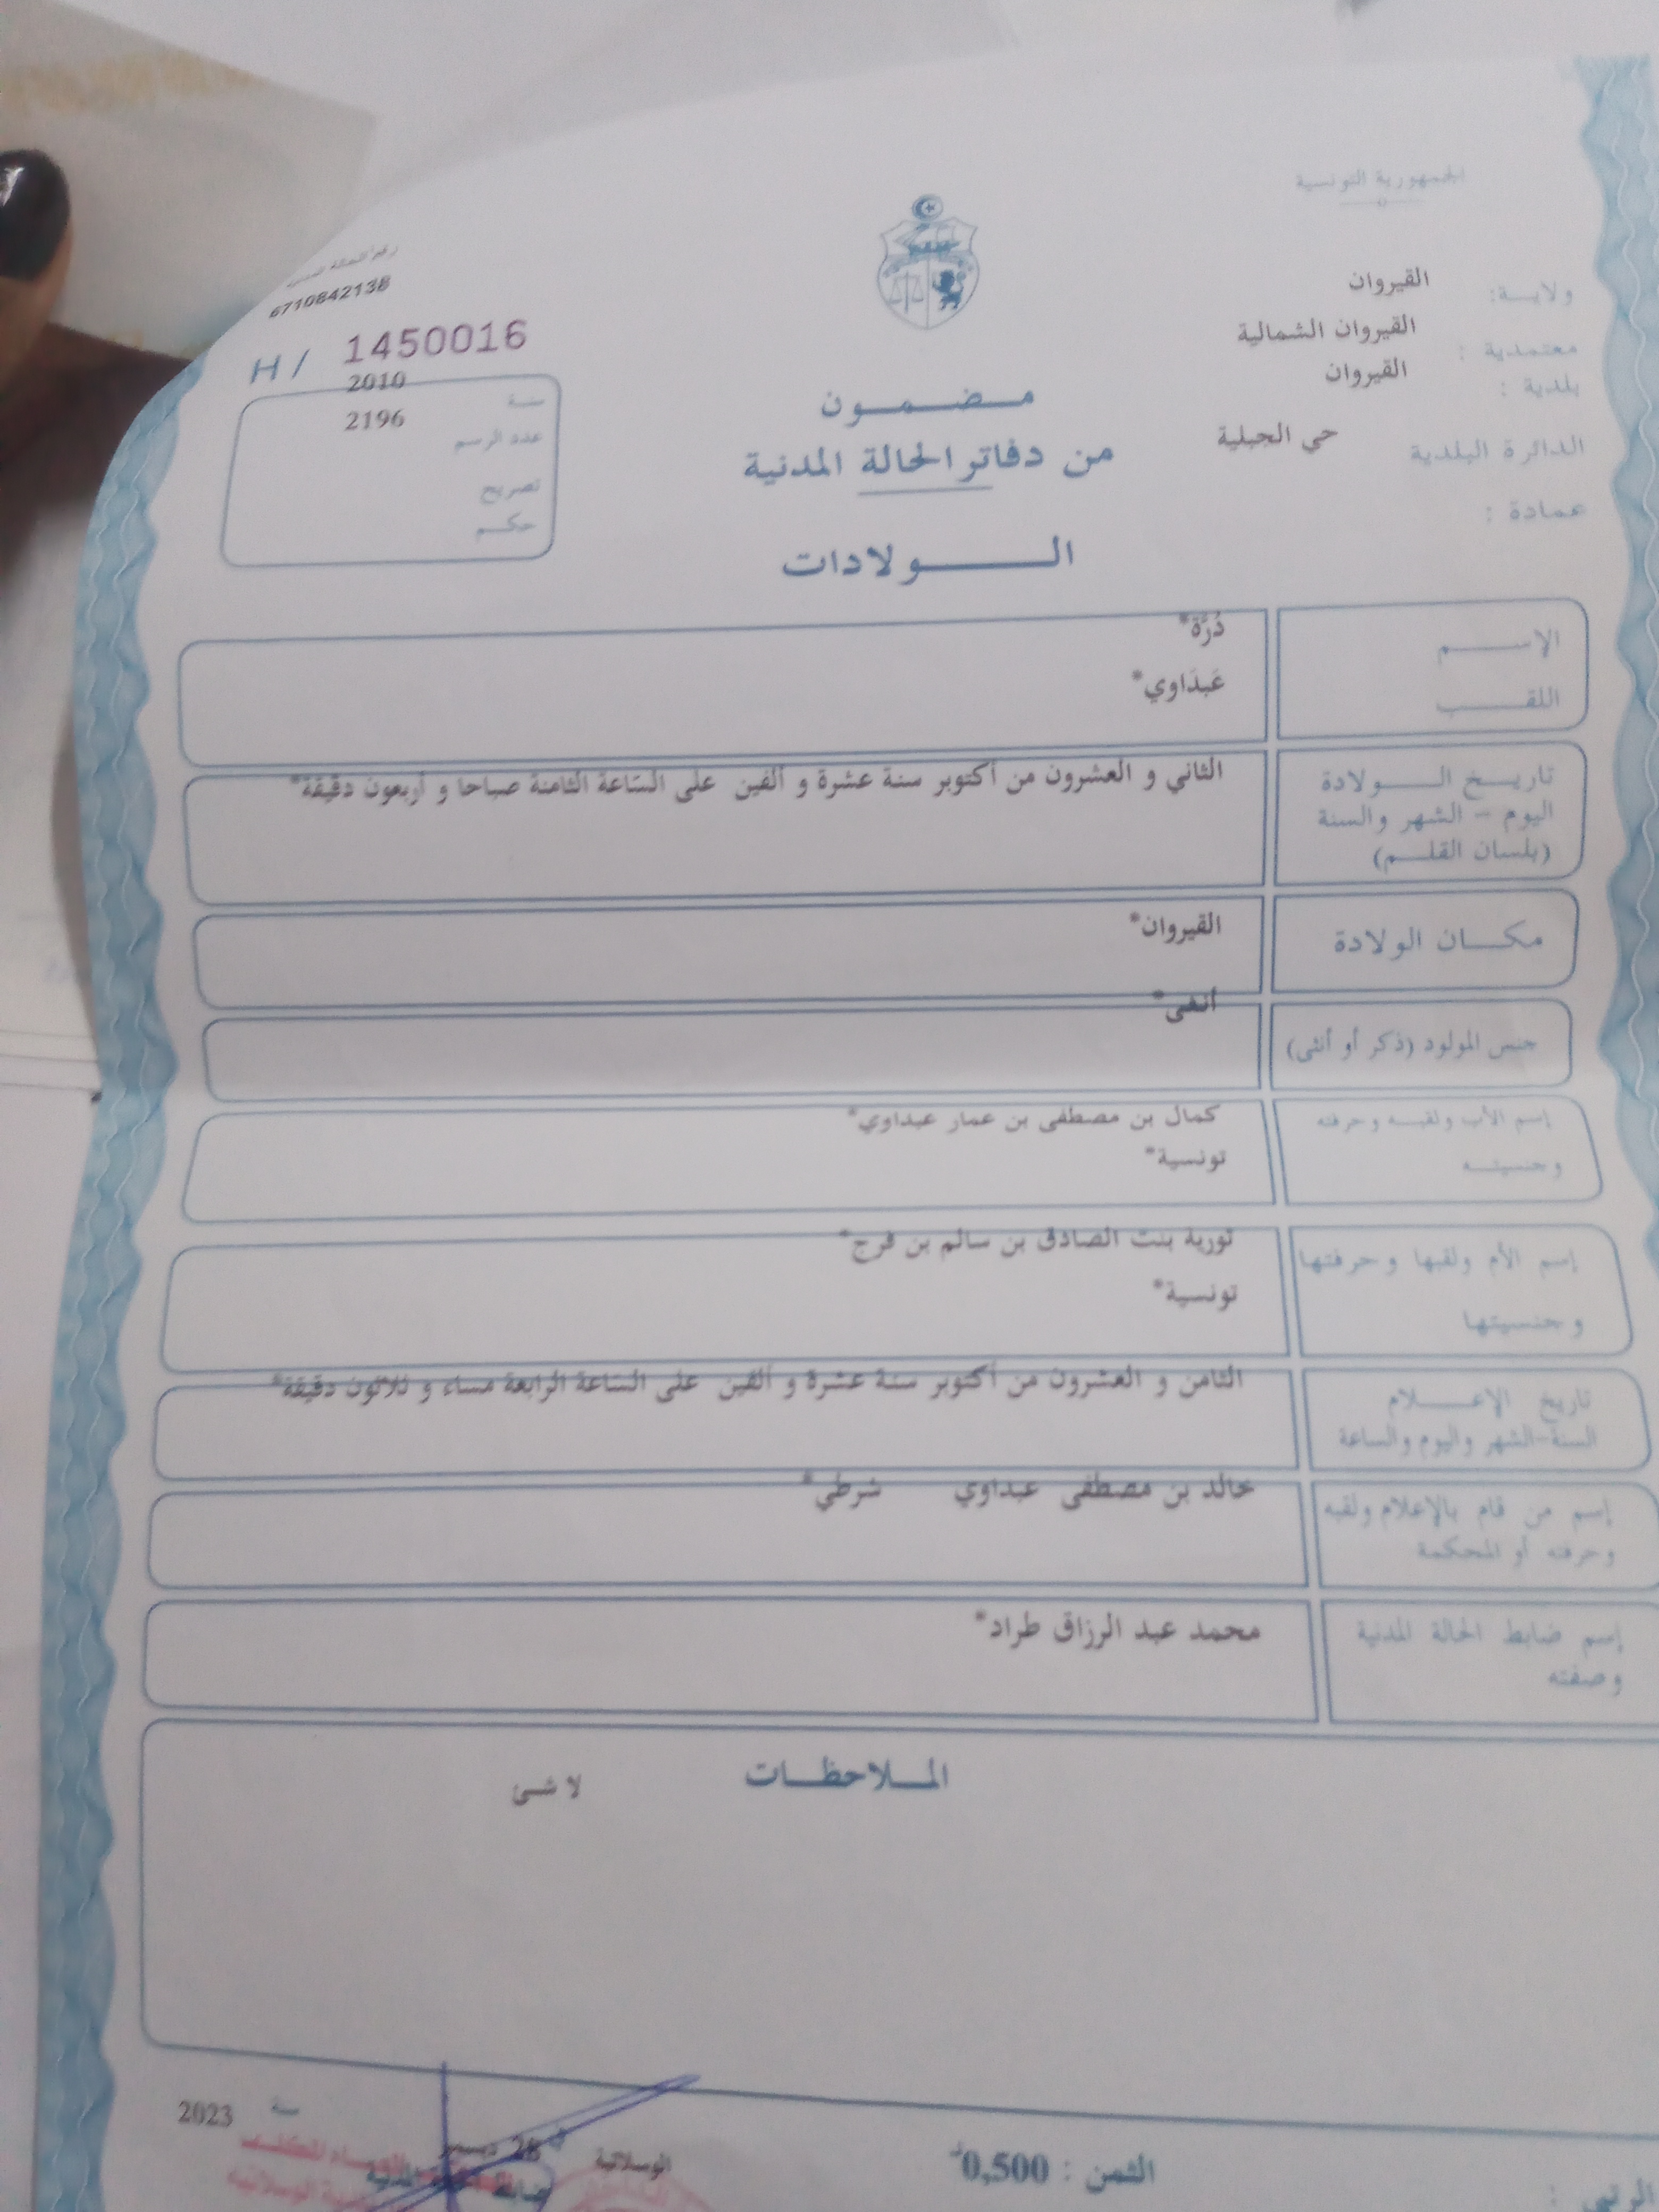 الجمهورية التونسية
ولايـــة: القيروان
معتمدية : القيروان الشمالية
بلدية : القيروان
الدائرة البلدية حي الجبلية
عمادة :
6710842138
H/ 1450016
سنة 2010
عدد الرسم 2196
تصريح
حكم
مضمون
من دفاتر الحالة المدنية
الولادات
الإسم دُرَّة*
اللقب عَبدَاوي*
تاريخ الولادة
اليوم - الشهر والسنة
(بلسان القلم)
الثاني و العشرون من أكتوبر سنة عشرة و ألفين على الساعة الثامنة صباحا و أربعون دقيقة*
مكان الولادة القيروان*
جنس المولود (ذكر أو أنثى) أنثى*
إسم الأب ولقبه وحرفته
وجنسيته
كمال بن مصطفى بن عمار عبداوي*
تونسية*
إسم الأم ولقبها وحرفتها
وجنسيتها
نورية بنت الصادق بن سالم بن فرج*
تونسية*
تاريخ الإعلام
السنة-الشهر واليوم والساعة
الثامن و العشرون من أكتوبر سنة عشرة و ألفين على الساعة الرابعة مساء و ثلاثون دقيقة*
إسم من قام بالإعلام ولقبه
وحرفته أو المحكمة
خالد بن مصطفى عبداوي شرطي*
إسم ضابط الحالة المدنية
وصفته
محمد عبد الرزاق طراد*
الملاحظات
لا شئ
الثمن : 0,500د
الوسلاتية 28 ديسمبر سنة 2023